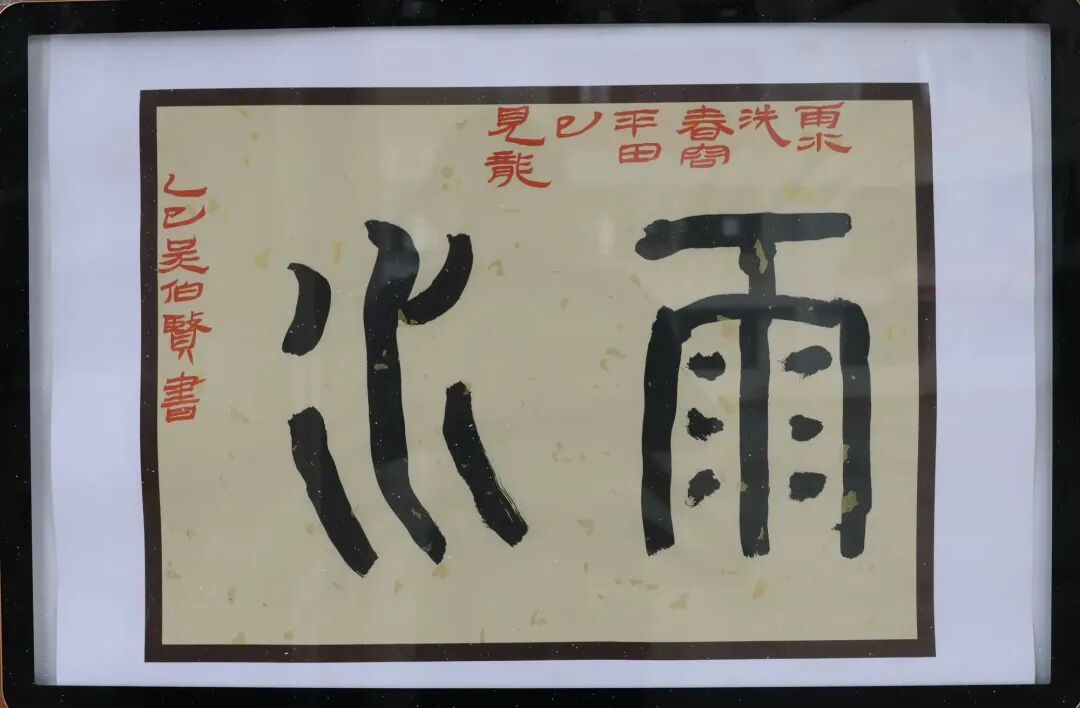 雨水
雨水
洗
春容
平田
已
見龍
乙巳吳伯賢書